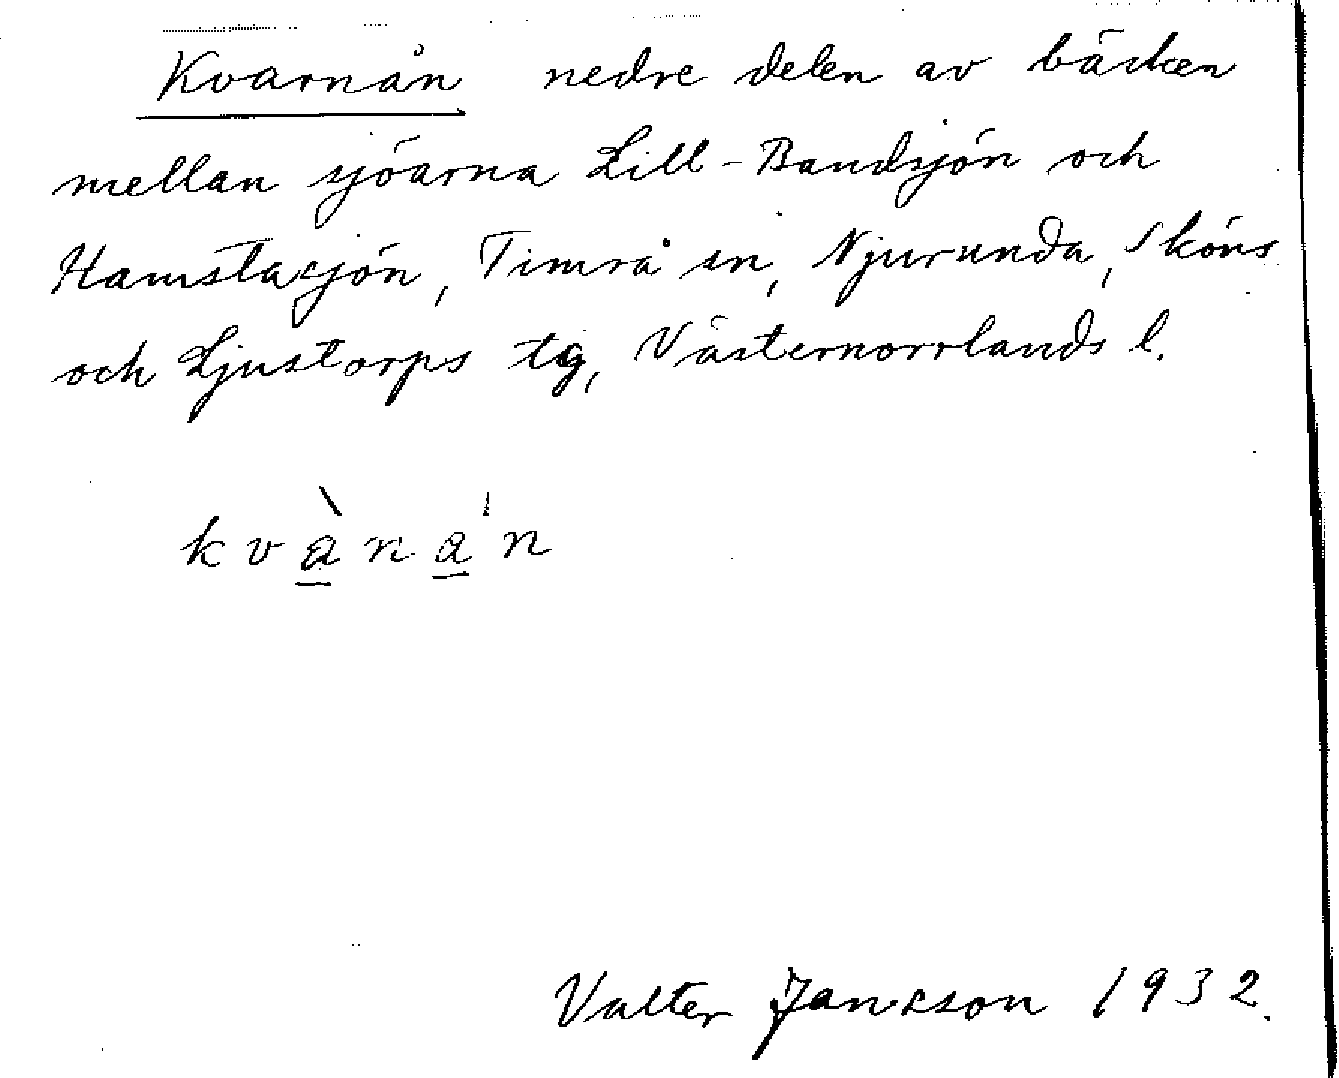 Kvarnån nedre delen av bäcken
mellan sjöarna Lill-Bandsjön och
Hamstasjön, Timrå sn, Njurunda, Sköns
och Ljustorps tg, Västernorrlands l.
kvànan
Valter Jansson 1932.